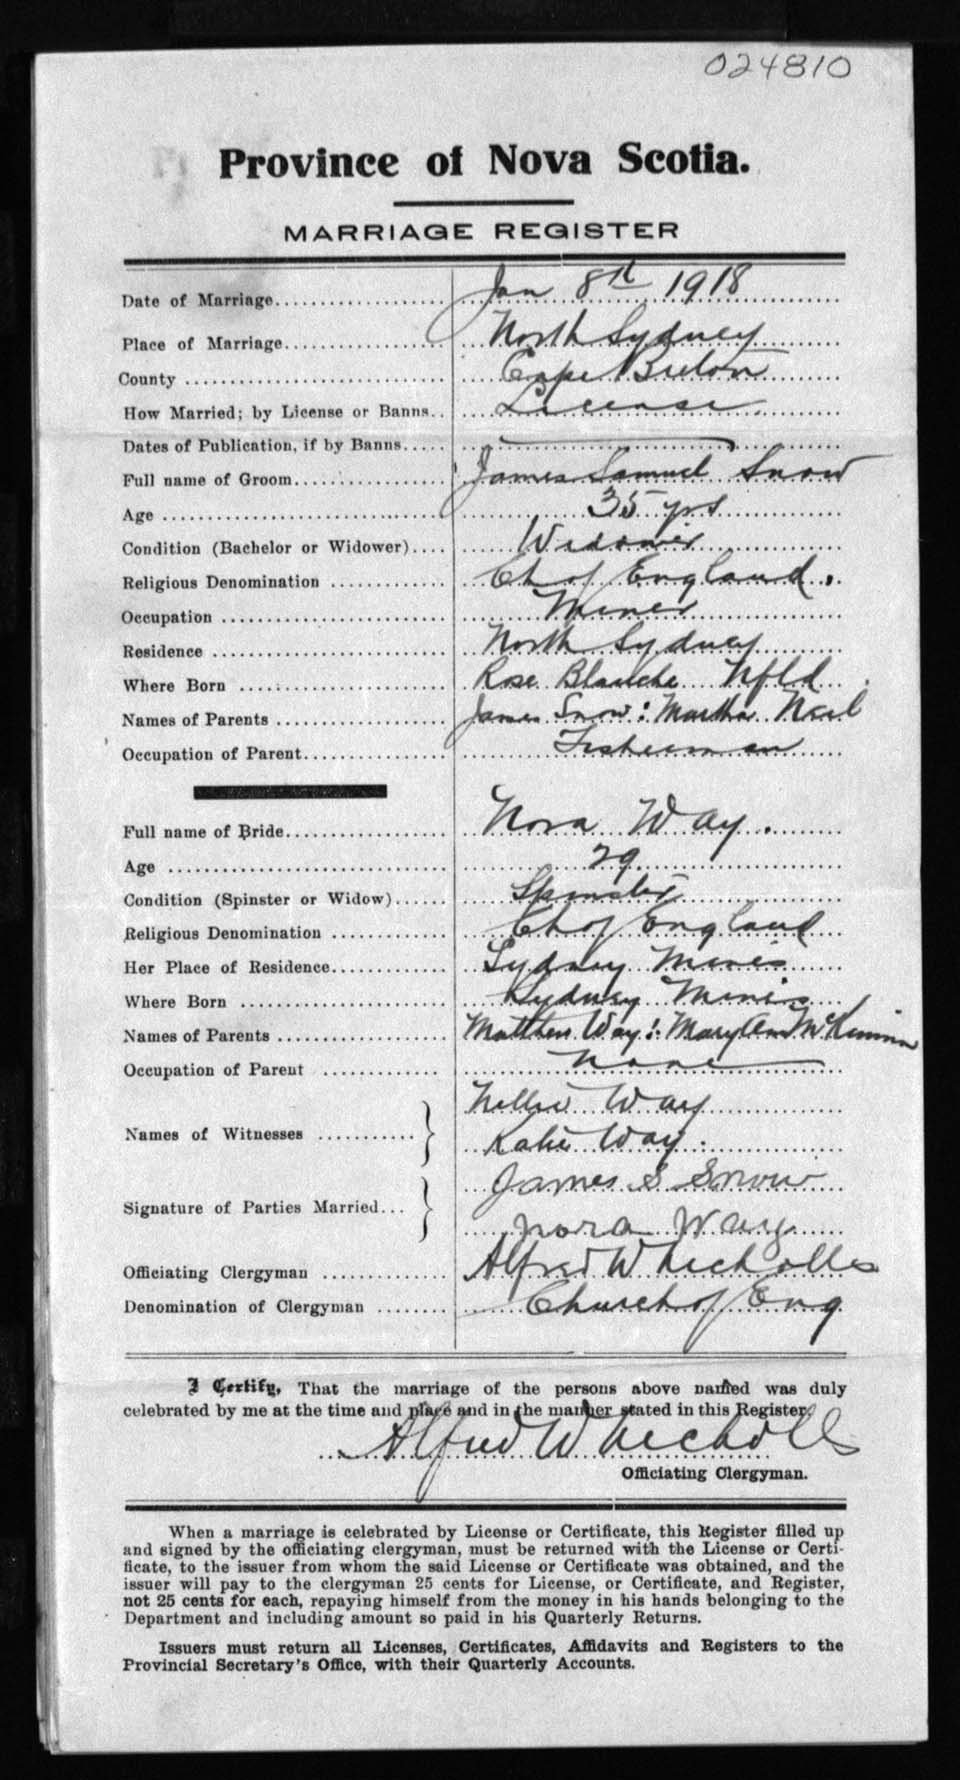 024810
Province of Nova Scotia.
MARRIAGE REGISTER
Date of Marriage Jan 8th 1918
Place of Marriage North Sydney
County Cape Breton
How Married; by License or Banns License
Dates of Publication, if by Banns
Full name of Groom James Samuel Snow
Age 35 yrs
Condition (Bachelor or Widower) Widower
Religious Denomination Ch of England.
Occupation Miner
Residence North Sydney
Where Born Rose Blanche Nfld
Names of Parents James Snow: Martha Neil
Occupation of Parent Fisherman
Full name of Bride Nora Way.
Age 29
Condition (Spinster or Widow) Spinster
Religious Denomination Ch of England
Her Place of Residence Sydney Mines
Where Born Sydney Mines
Names of Parents Matthew Way: Mary Ann McKinnon
Occupation of Parent None
Nellie Way
Names of Witnesses }
Katie Way.
James S Snow
Signature of Parties Married }
Nora Way
Officiating Clergyman Alfred W Nicholls
Denomination of Clergyman Church of Eng
I Certify, That the marriage of the persons above named was duly
celebrated by me at the time and place and in the manner stated in this Register.
Alfred W Nicholls
Officiating Clergyman.
When a marriage is celebrated by License or Certificate, this Register filled up
and signed by the officiating clergyman, must be returned with the License or Certi-
ficate, to the issuer from whom the said License or Certificate was obtained, and the
issuer will pay to the clergyman 25 cents for License, or Certificate, and Register,
not 25 cents for each, repaying himself from the money in his hands belonging to the
Department and including amount so paid in his Quarterly Returns.
Issuers must return all Licenses, Certificates, Affidavits and Registers to the
Provincial Secretary's Office, with their Quarterly Accounts.